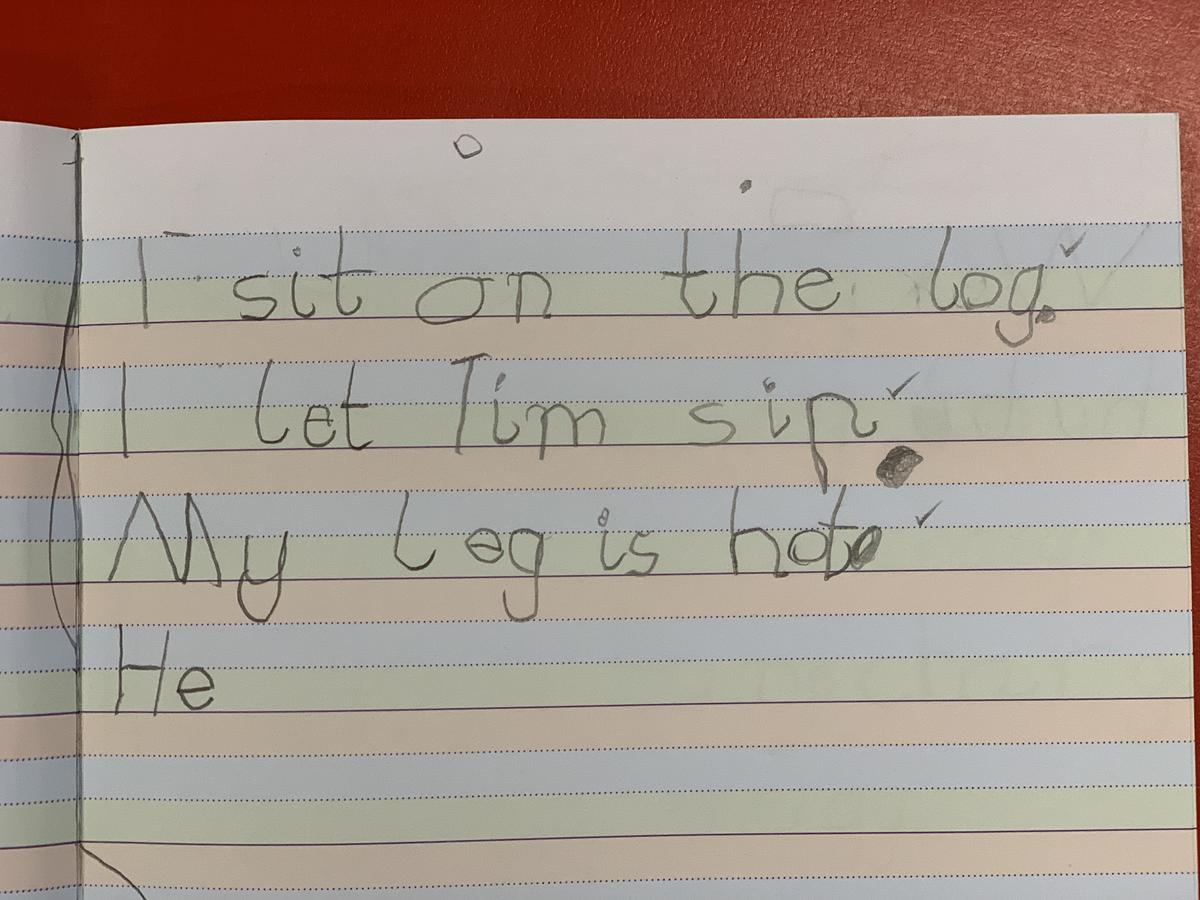 I sit on the log.
I let Tim sip.
My leg is hot.
He